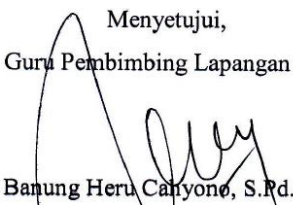 Menyetujui,
Guru Pembimbing Lapangan
Banung Heru Cahyono, S.Pd.